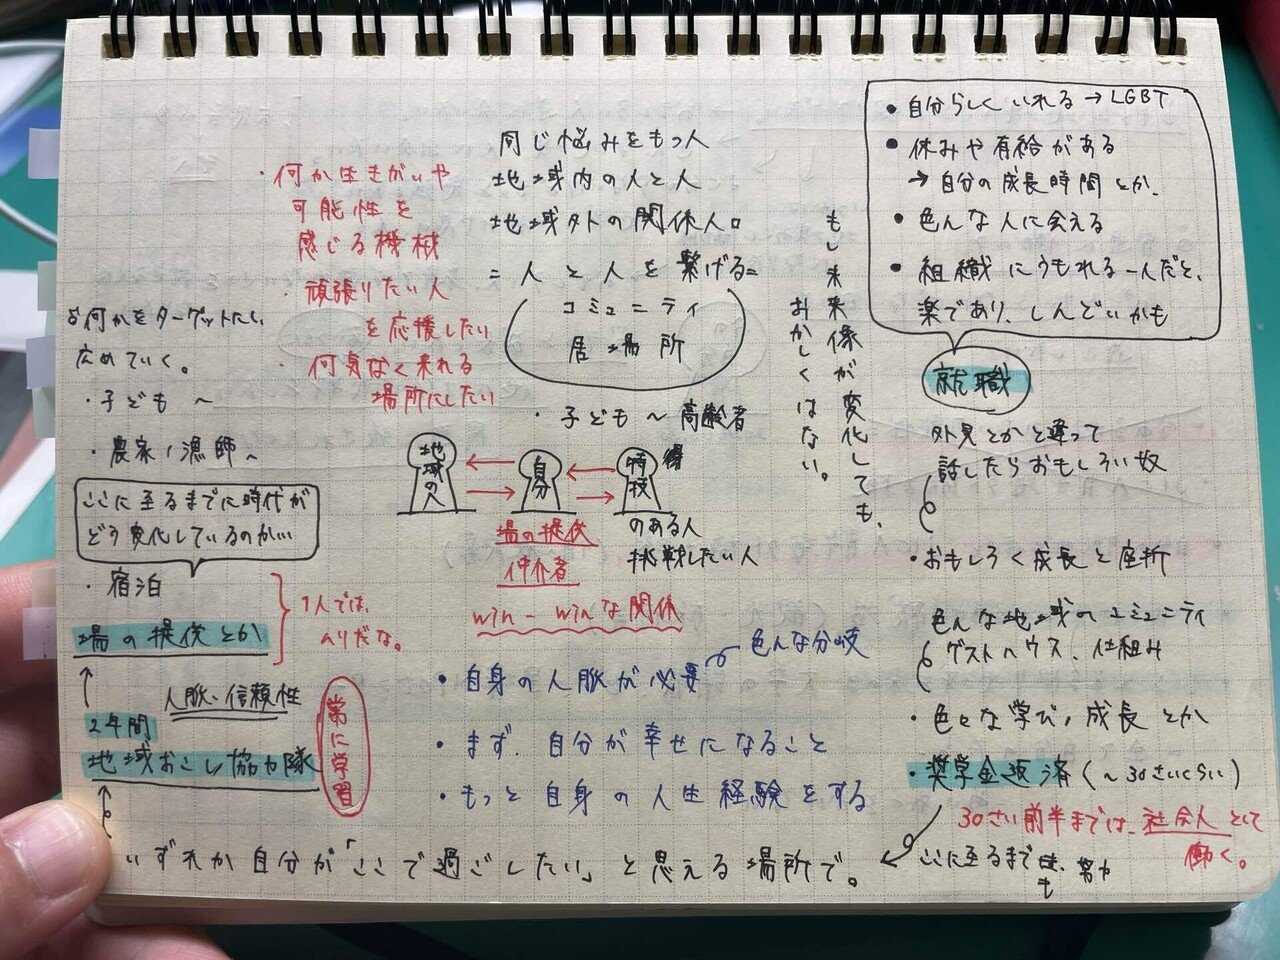 ・自分らしくいれる→LGBT
・休みや有給がある
→自分の成長時間とか、
・色んな人に会える
・組織にうもれる一人だと、
楽であり、しんどいかも
就職
外見とかと違って
話したらおもしろい奴
・おもしろく成長と座折
色んな地域のコミュニティ
ゲストハウス、仕組み
・色々な学び、成長とか
・奨学金返済(〜30さいくらい)
30さい前半までは、社会人として
働く。
ここに至るまで
も 努力
もし未来像が変化しても、
おかしくはない。
同じ悩みをもつ人
地域内の人と人
地域外の関係人。
=人と人を繋げる=
コミュニティ
居場所
・子ども〜高齢者
・何か生きがいや
可能性を
感じる機械
・頑張りたい人
を応援したい
・何気なく来れる
場所にしたい
地域の人
自分
特技
場の提供
仲介者
のある人
挑戦したい人
win-winな関係
・自身の人脈が必要
色んな分岐
・まず、自分が幸せになること
・もっと自身の人生経験をする
何かをターゲットにし
広めていく。
・子ども〜
・農家、漁師〜
ここに至るまでに時代が
どう変化しているのかい
・宿泊
場の提供とか
1人では、
ムリだな。
人脈、信頼性
2年間
地域おこし協力隊
常に学習
いずれか自分が「ここで過ごしたい」と思える場所で。